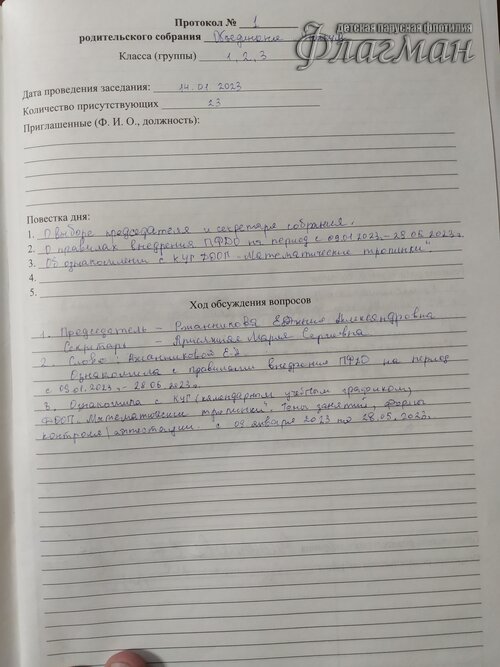 Протокол № 1
детская парусная флотилия
Флагман
родительского собрания
Класса (группы) 1, 2, 3
Дата проведения заседания: 14.01 2023
Количество присутствующих 23
Приглашенные (Ф. И. О., должность):
Повестка дня:
1. О выборе председателя и секретаря собрания.
2. О правилах внедрения ПФДО на период с 09.01.2023 - 28.05.2023г.
3. Об ознакомлении с КУГ ДООП "Математические тропинки"
4.
5.
Ход обсуждения вопросов
1. Председатель - Александровна
Секретарь - Мария Сергеевна
2. Слово:
Ознакомила с правилами внедрения ПФДО на период
с 09.01.2023г. - 28.05.2023г.
3. Ознакомила с КУГ (календарным учебным графиком)
ДООП "Математические тропинки. занятий, формы
контроля/аттестации. с 09 января 2023 по 28.05.2023г.